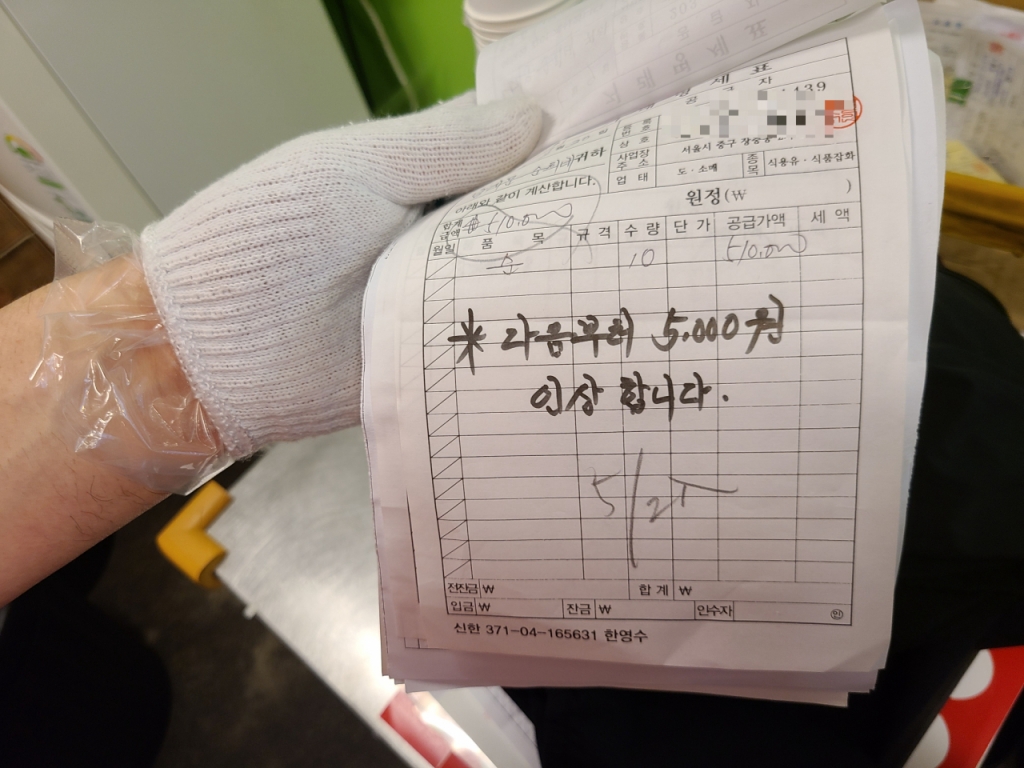 공급자
139
번호
상호
사업장
주소
서울시 중구
업태
도·소매
종목
식용유·식품잡화
귀하
아래와 같이 계산합니다.
합계
금액
₩510,000
원정(₩ )
월일 품목 규격 수량 단가 공급가액 세액
식 10 510,000
※ 다음부터 5.000원
인상 합니다.
5/25
전잔금 ₩ 합계 ₩
입금 ₩ 잔금 ₩ 인수자 ㊞
신한 371-04-165631 한영수